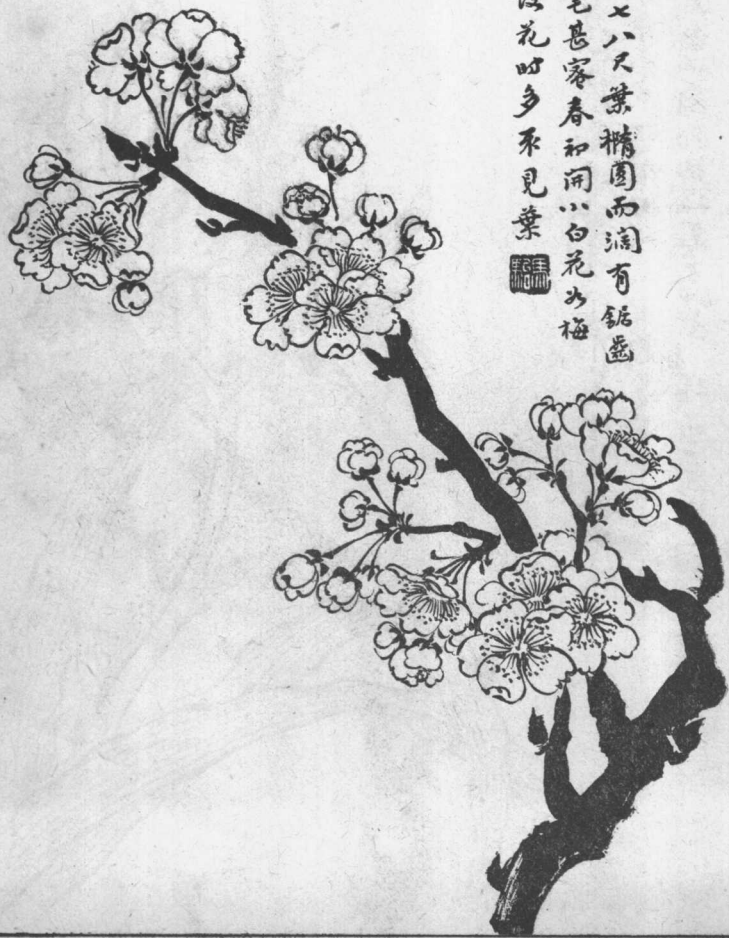 七八尺葉橢圓而濶有鋸齒
甚密春初開小白花如梅
花時多不見葉